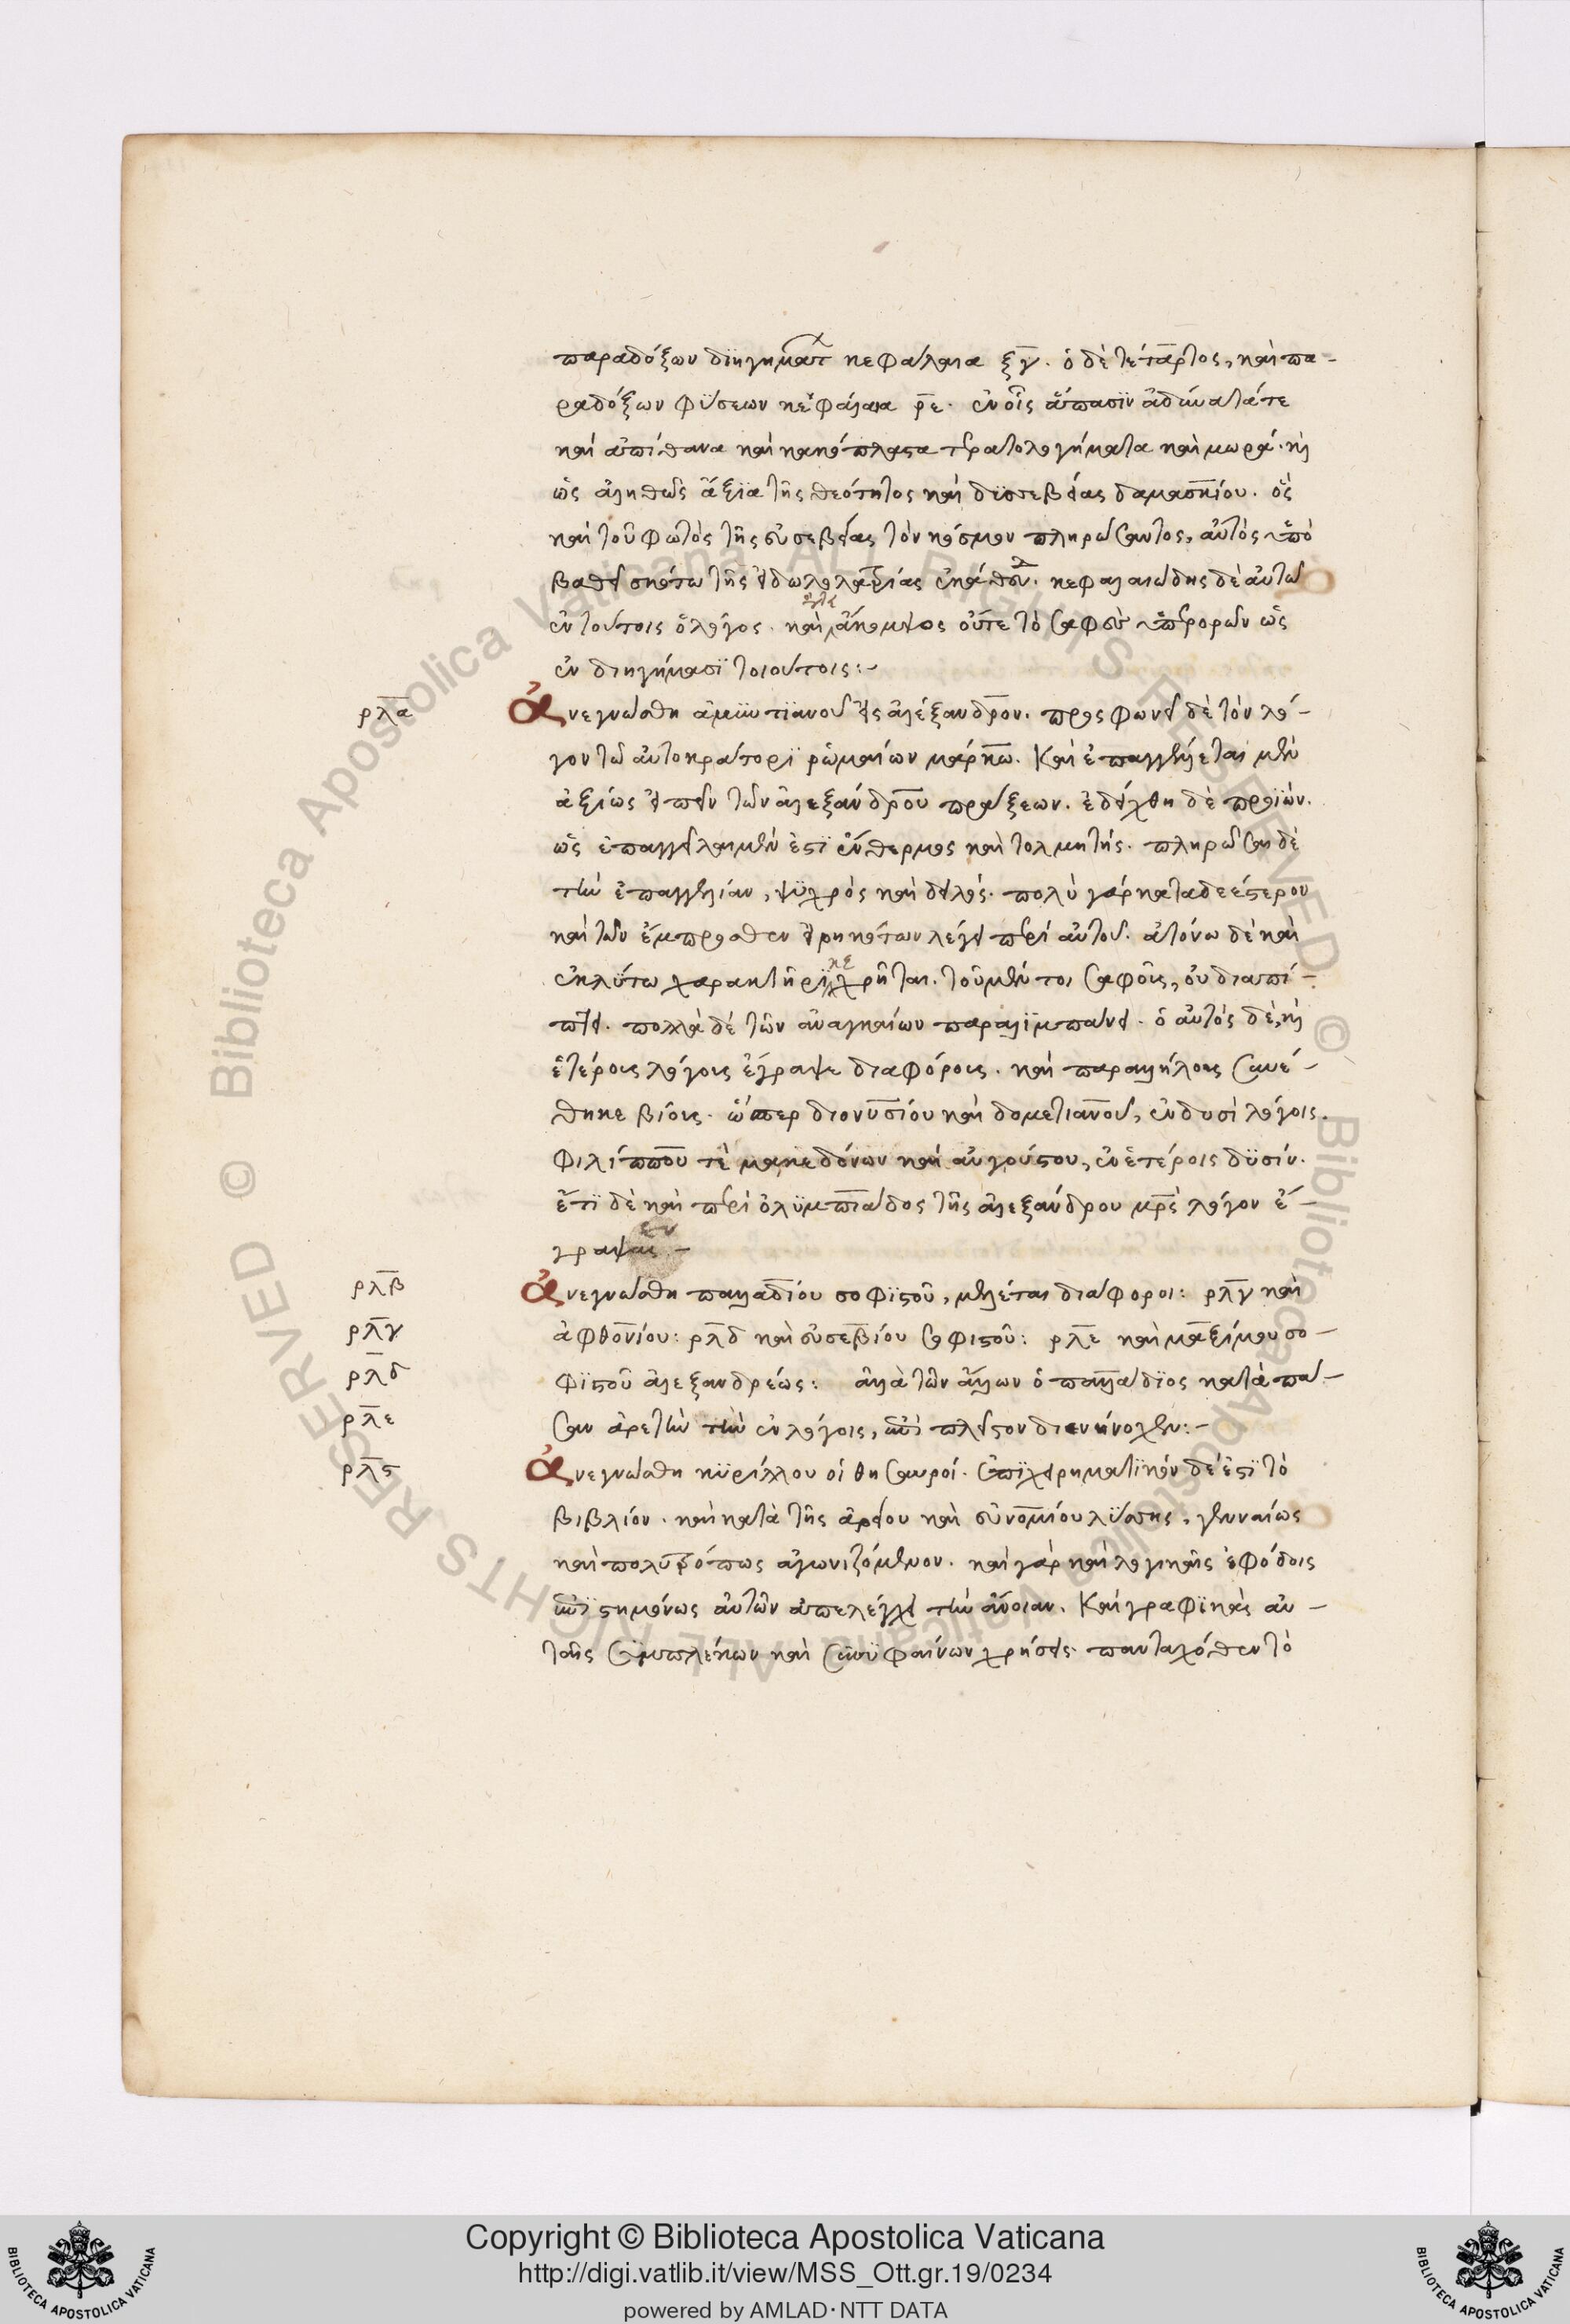 παραδόξων διηγημάτ κεφάλαια ξγ. ὁ δὲ τέταρτος, καὶ πα-
ραδόξων φύσεων κεφάλαια ρε. ἐν οἷς ἅπασιν ἀδύνατά τε
καὶ ἀπίθανα καὶ κακόπλαστα τερατολογήματα καὶ μωρά. κỳ
ὡς ἀληθῶς ἄξια τῆς θεότητος καὶ δυσσεβείας δαμασκίου. ὃς
καὶ τοῦ φωτὸς τῆς εὐσεβείας τὸν κόσμον πληρώσαντος, αὐτὸς ὑπὸ
βαθεῖ σκότω τῆς εἰδωλολατρείας ἐκάθευ. κεφαλαιώδης δὲ αὐτῶ
ἐν τούτοις ὁ λόγος. καὶ ἄκομψος οὔτε τὸ σαφὲς ὑπερορῶν ὡς
ἐν διηγήμασι τοιούτοις:-
ρλα
Ἀνεγνώσθη ἀμυντιανοῦ εἰς ἀλέξανδρον. προσφωνεῖ δὲ τὸν λό-
γον τῶ αὐτοκράτορι ῥωμαίων μάρκω. καὶ ἐπαγγέλλεται μὲν
ἀξίως εἰπεῖν τῶν ἀλεξάνδρου πράξεων. ἐδείχθη δὲ προϊὼν.
ὡς ἐπαγγείλασθαι μέν ἐστι ἔνθερμος καὶ τολμητής. πληρῶσαι δὲ
τὴν ἐπαγγελίαν, ψυχρὸς καὶ δειλός. πολὺ γὰρ καταδεέστερον
καὶ τῶν ἔμπροσθεν εἰρηκότων λέγει περὶ αὐτοῦ. ἀτόνω δὲ καὶ
ἐκλύτω χαρακτῆρι κέχρηται. τοῦ μέντοι σαφοῦς, οὐ διαπί-
πτει. πολλὰ δὲ τῶν ἀναγκαίων παραλιμπάνει. ὁ αὐτὸς δὲ, κỳ
ἑτέροις λόγοις ἔγραψε διαφόροις. καὶ παραλλήλους συνέ-
θηκε βίους. ὥσπερ διονυσίου καὶ δομετιανοῦ, ἐν δυσὶ λόγοις.
φιλίππου τὲ μακεδόνων καὶ αὐγούστου, ἐν ἑτέροις δυσίν.
ἔτι δὲ καὶ περὶ ὀλυμπιάδος τῆς ἀλεξάνδρου μρς λόγον ἔ-
γραψεν -
ρλβ
Ἀνεγνώσθη παλλαδίου σοφιστοῦ, μελέται διάφοροι: ρλγ καὶ
ρλγ
ἀφθονίου: ρλδ καὶ εὐσεβίου σοφιστοῦ: ρλε καὶ μαξίμου σο-
ρλδ
φιστοῦ ἀλεξανδρέως: ἀλλὰ τῶν ἄλλων ὁ παλλάδιος κατὰ πᾶ-
ρλε
σαν ἀρετὴν τὴν ἐν λόγοις, ἐπὶ πλεῖστον διενήνοχεν:-
ρλς
Ἀνεγνώσθη κυρίλλου οἱ θησαυροί. ἐπιχειρηματικὸν δέ ἐστι τὸ
βιβλίον. καὶ κατὰ τῆς ἀρείου καὶ εὐνομίου λύσσης, γενναίως
καὶ πολυτρόπως ἀγωνιζόμενον. καὶ γὰρ καὶ λογικαῖς ἐφόδοις
ἐπιστημόνως αὐτῶν ἀπελέγχει τὴν ἄνοιαν. καὶ γραφικὰς αὐ-
ταῖς συμπλέκων καὶ συνυφαίνων χρήσεις. πανταχόθεν τὸ
Copyright © Biblioteca Apostolica Vaticana
http://digi.vatlib.it/view/MSS_Ott.gr.19/0234
powered by AMLAD·NTT DATA
BIBLIOTECA APOSTOLICA VATICANA
BIBLIOTECA APOSTOLICA VATICANA